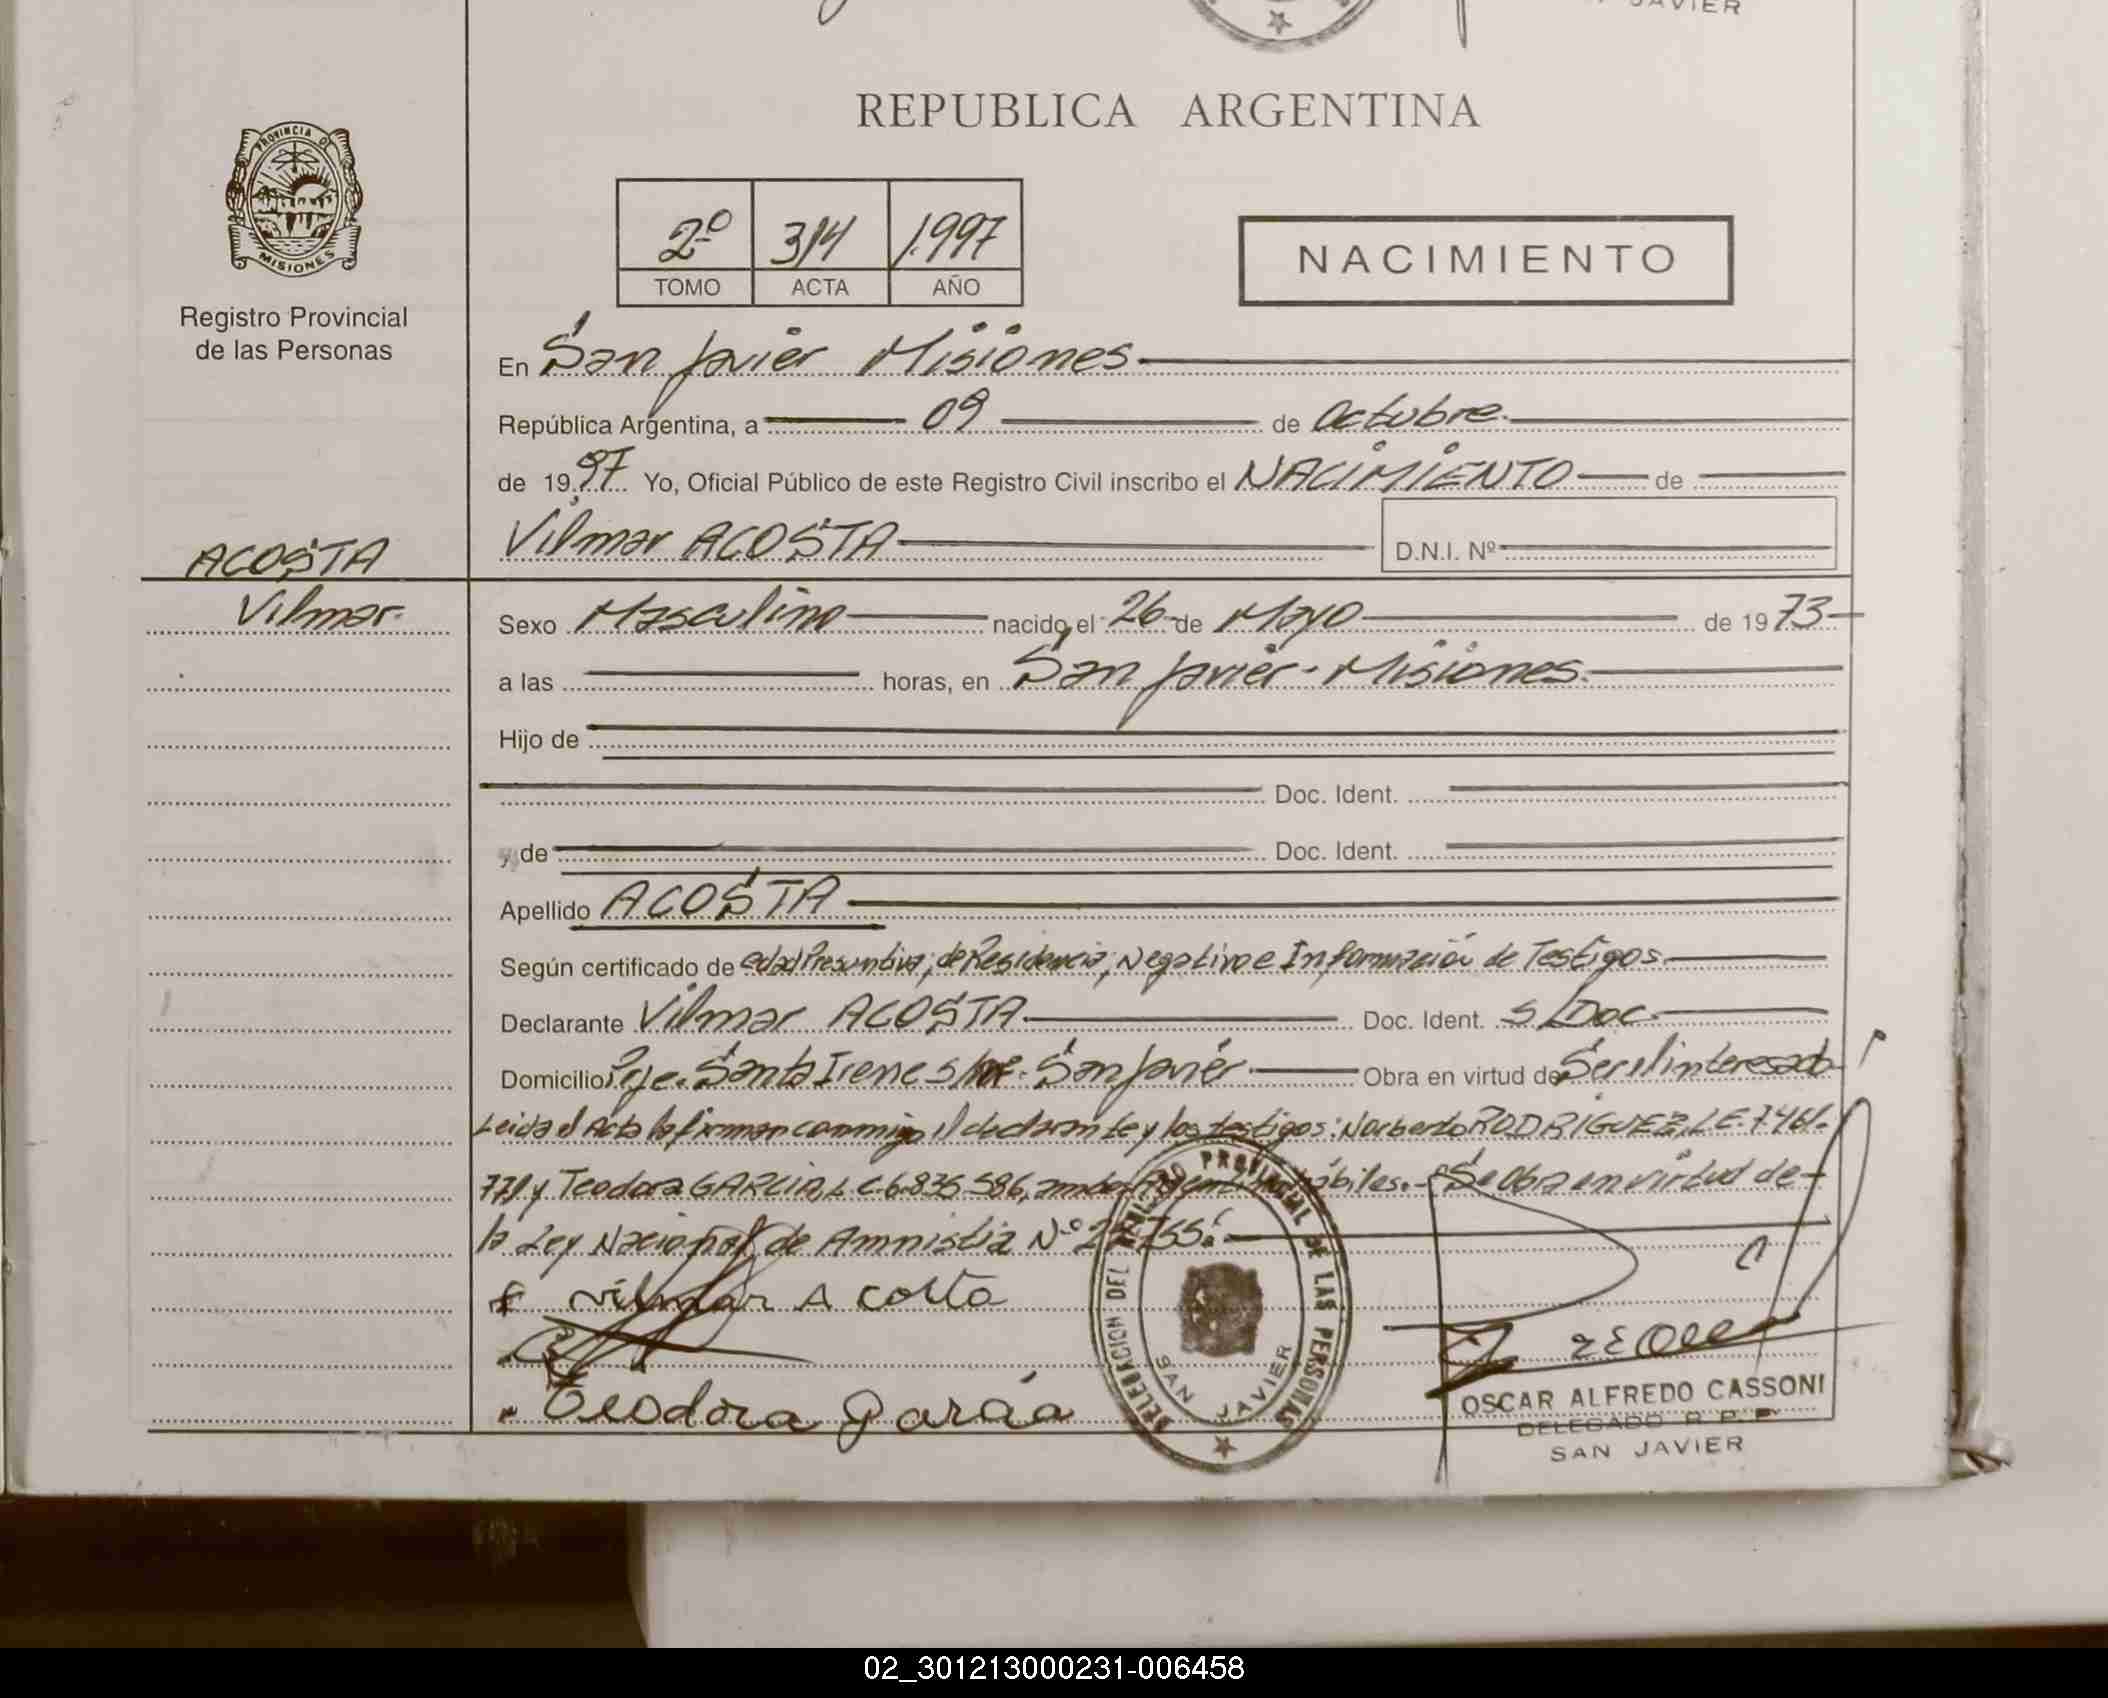 JAVIER
REPUBLICA ARGENTINA
PROVINCIA DE
MISIONES
Registro Provincial
de las Personas
2º 314 1997
TOMO ACTA AÑO
NACIMIENTO
En San Javier Misiones
República Argentina, a 09 de Octubre
de 1997 Yo, Oficial Público de este Registro Civil inscribo el NACIMIENTO de
Vilmar ACOSTA D.N.I. Nº
ACOSTA
Vilmar.
Sexo Masculino nacido el 26 de Mayo de 1973
a las horas, en San Javier - Misiones.
Hijo de
Doc. Ident.
y de Doc. Ident.
Apellido ACOSTA
Según certificado de edad Presuntiva, de Residencia, Negativo e Información de Testigos.
Declarante Vilmar ACOSTA Doc. Ident. S/Doc.
Domicilio Pje. Santa Irene S/Nº. San Javier Obra en virtud de Ser el interesado
Leida el Acta la firman conmigo el declarante y los testigos: Norberto RODRIGUEZ, L.E. 7.461.
771 y Teodora GARCIA, L.C. 6.835.586, ambos hábiles. - Se Obra en virtud de
la Ley Nacional de Amnistia Nº
vilmar A costa
Teodora Garcia
DELEGACION DEL REGISTRO PROVINCIAL DE LAS PERSONAS
SAN JAVIER
OSCAR ALFREDO CASSONI
DELEGADO R. P. P.
SAN JAVIER
02_301213000231-006458